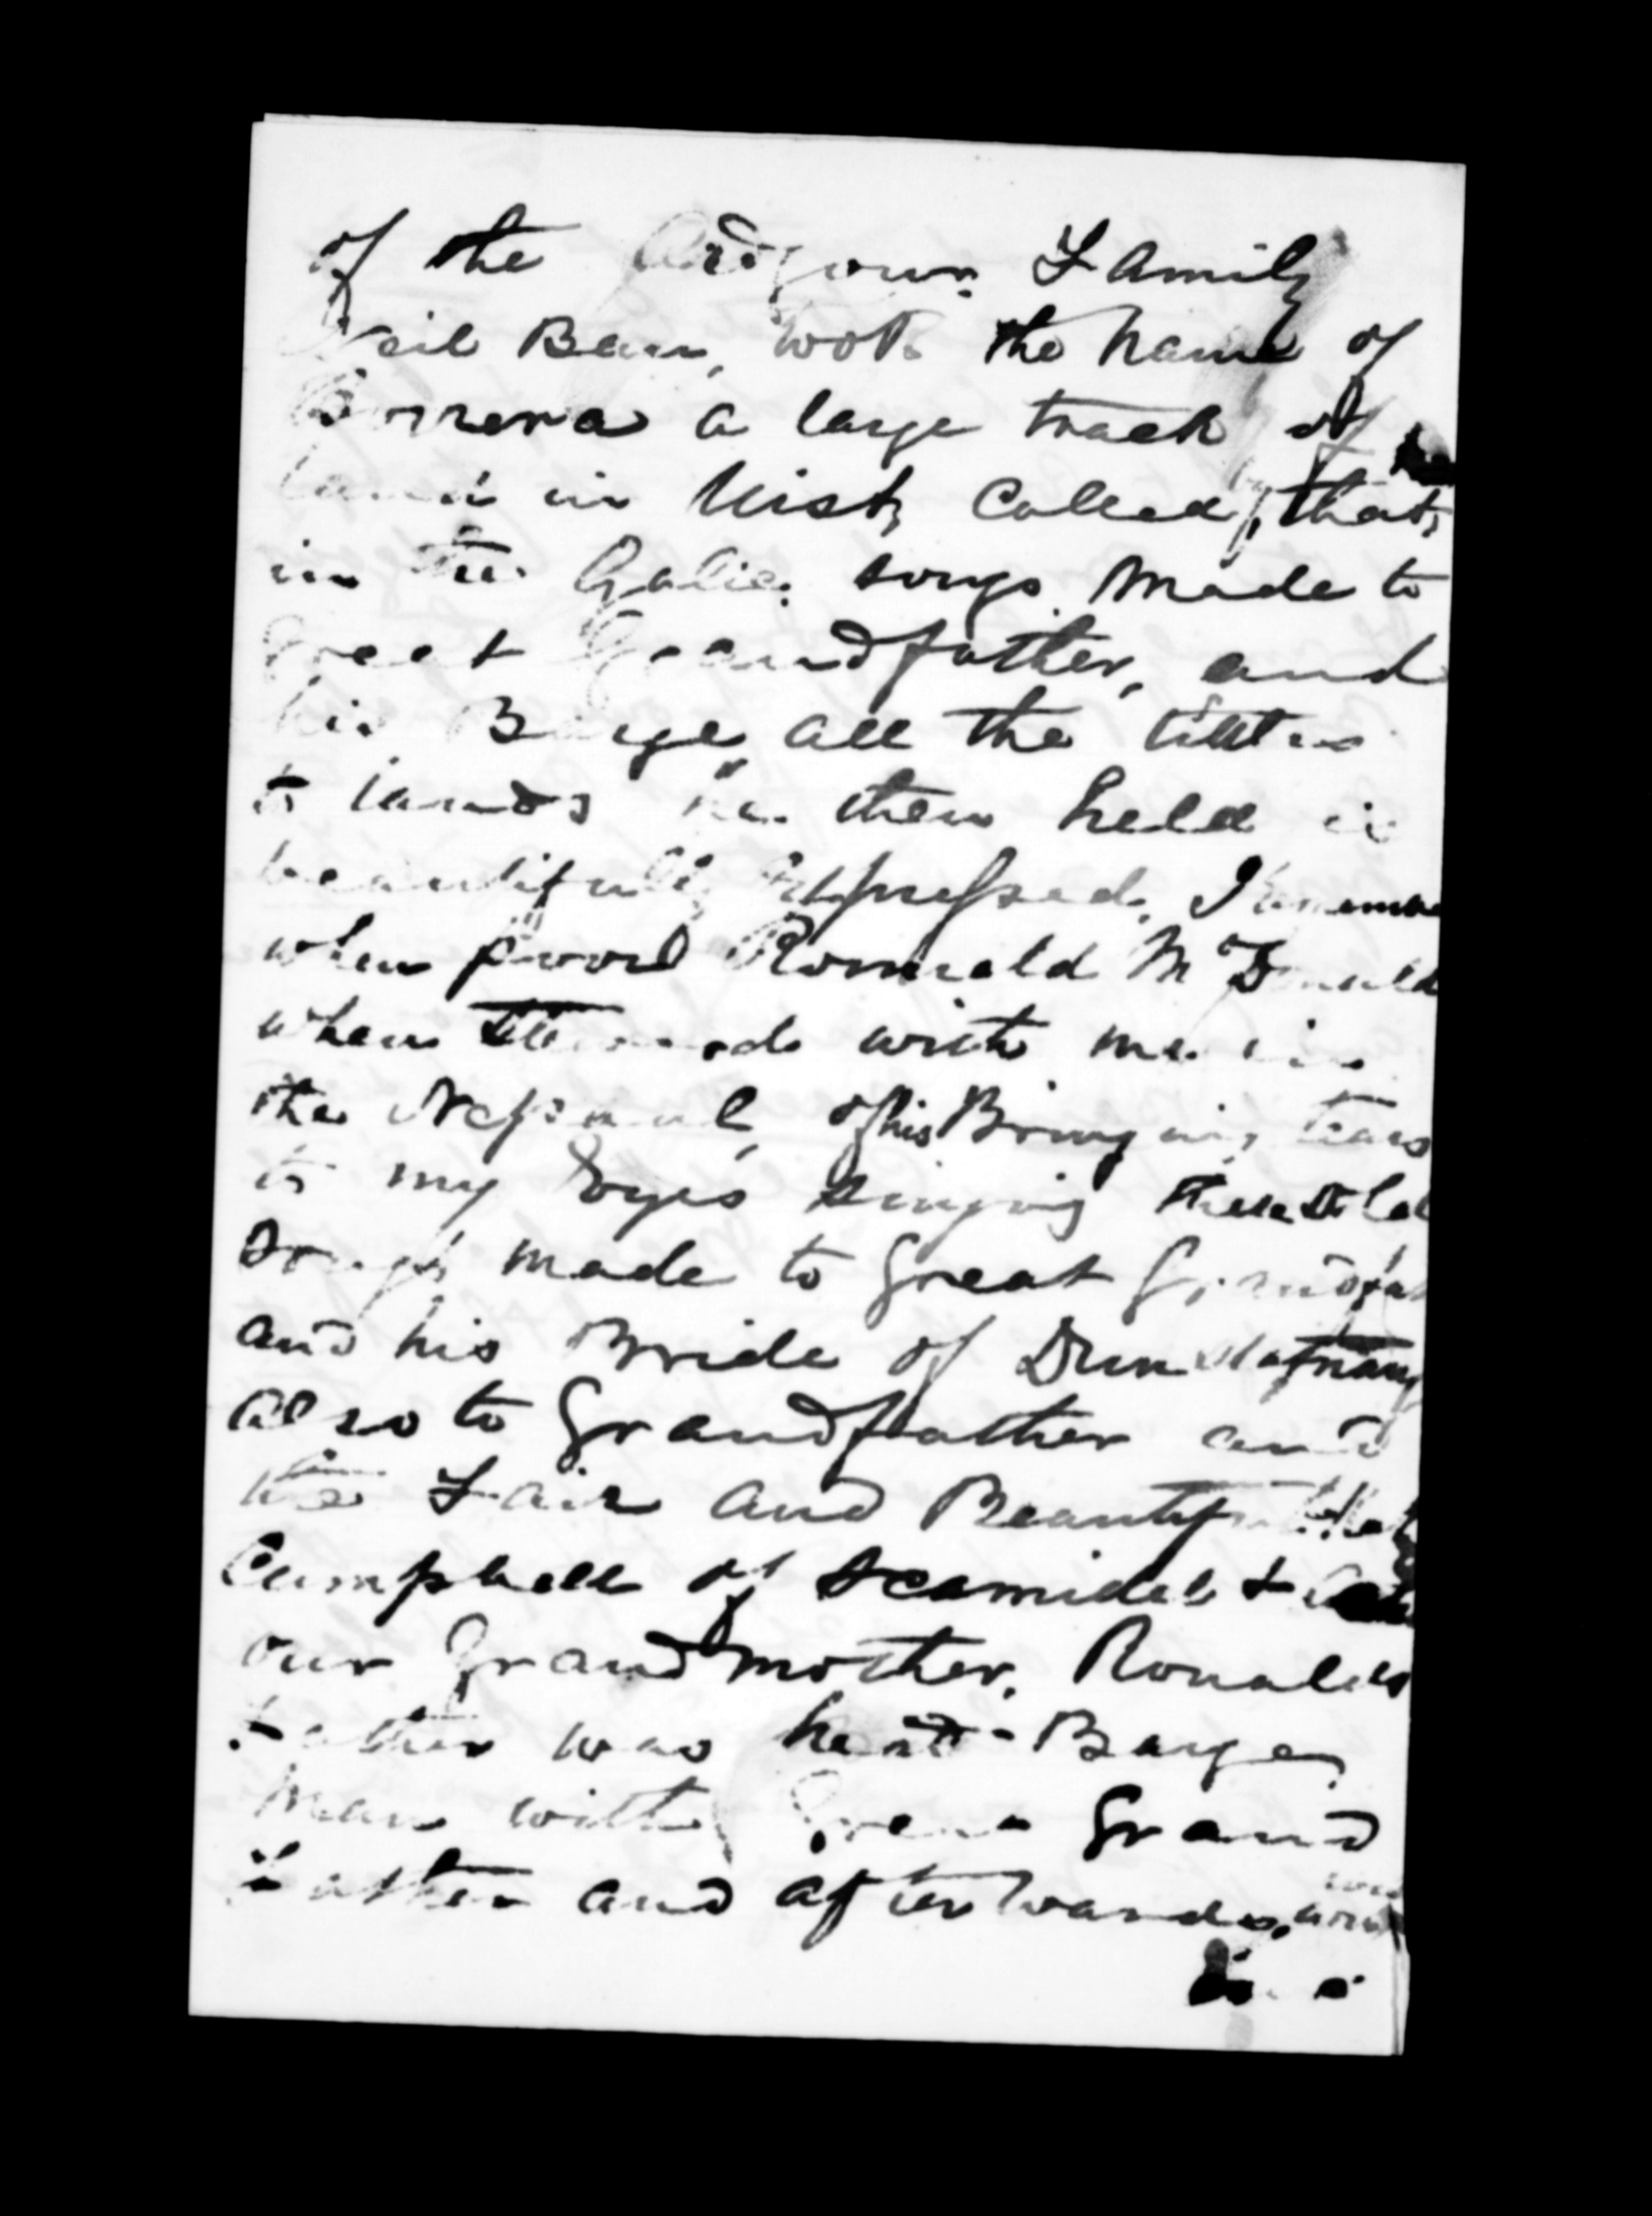 of the Ardgour Family
Neil Ban, took the name of
Borrera a large track of
land in Uist, Called, that,
in the Galic songs made to
Great Grandfather, and
his Barge, all the titles
to lands he then held is
beautifully Expressed,
when poor Ronald McDonald
when with me in
the Nepaul, of his Bringing tears
to my Eyes singing these Old
songs made to Great Grandfat
and his Bride of Dunstaffnay
also to Grandfather and
the Fair and Beautiful
Campbell of Scamidel &
our Grandmother, Ronalds
Father was head - Barge
man with Great Grand
Father and afterwards,